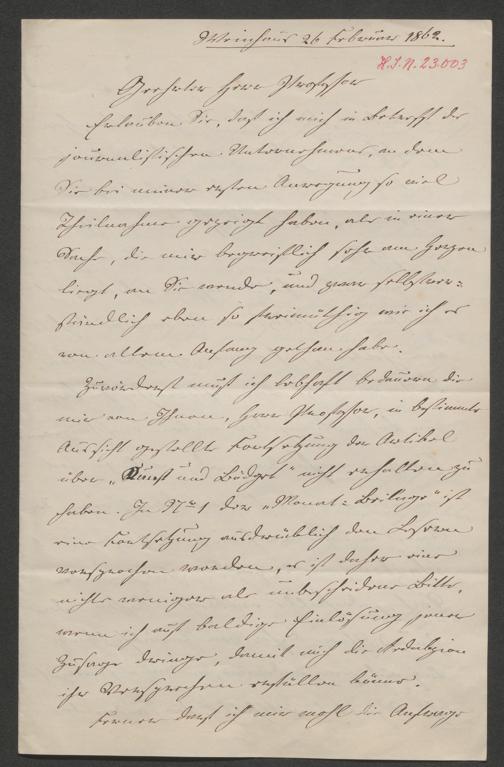 Weinhaus 26 Februar 1862.
H.I.N. 23.003
Geehrter Herr Professor
Erlauben Sie, daß ich mich in Betreff des
journalistischen Unternehmens, an dem
Sie bei meiner ersten Anregung so viel
Theilnahme gezeigt haben, als in einer
Sache, die mir begreiflich sehr am Herzen
liegt, an Sie wende, und zwar selbstver=
ständlich eben so freimüthig wie ich es
von allem Anfang gethan habe.
Zuvörderst muß ich lebhaft bedauern die
mir von Ihnen, Herr Professor, in bestimmte
Aussicht gestellte Fortsetzung der Artikel
über „Kunst und Büdget" nicht erhalten zu
haben. In Nro 1 der „Monat=Beilage" ist
eine Fortsetzung ausdrücklich den Lesern
versprochen worden, es ist daher eine
nichts weniger als unbescheidene Bitte,
wenn ich auf baldige Einlösung jener
Zusage dringe, damit auch die Redakzion
ihr Versprechen erfüllen könne.
Ferner darf ich mir wohl die Anfrage